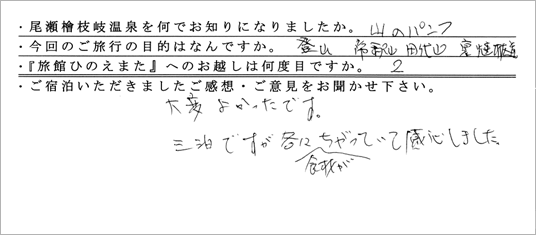 ・尾瀬檜枝岐温泉を何でお知りになりましたか。 山のパンフ
・今回のご旅行の目的はなんですか。 登山 帝釈山 田代山
・『旅館ひのえまた』へのお越しは何度目ですか。 2
・ご宿泊いただきましたご感想・ご意見をお聞かせ下さい。
大変よかったです。
三泊ですが各にちがっていて感心しました。
食材が